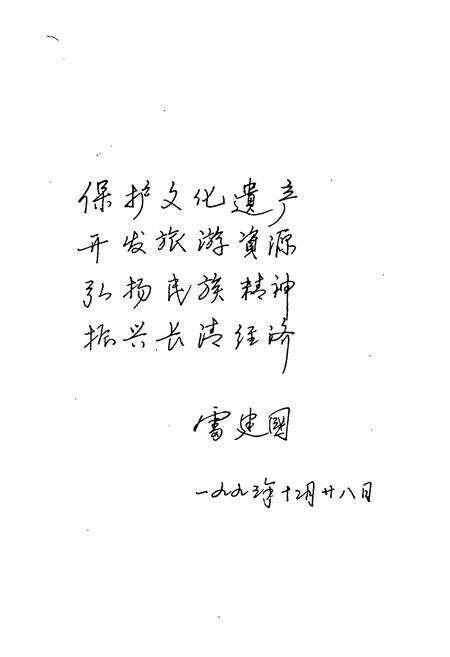 保护文化遗产
开发旅游資源
弘扬民族精神
振兴长清经济
雷建國
一九九三年十二月廿八日